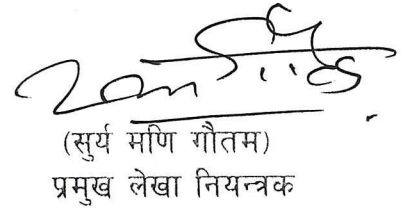 (सुर्य मणि गौतम)
प्रमुख लेखा नियन्त्रक